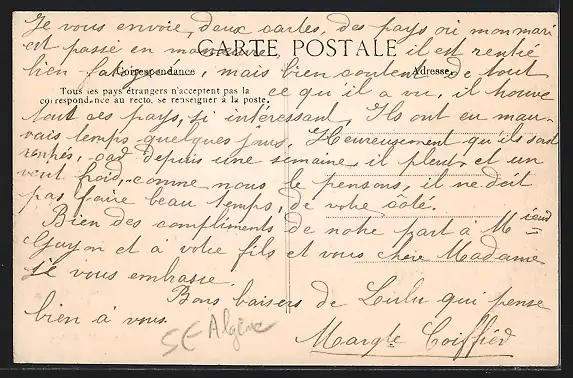 Je vous envoie, deux cartes, des pays où mon mari
est passé en manoeuvre, il est rentré
CARTE POSTALE
bien fatigué, mais bien content de tout
Correspondance
Adresse
ce qu'il a vu, il trouve
Tous les pays étrangers n'acceptent pas la
correspondance au recto, se renseigner à la poste.
tout ces pays, si intéressant. Ils ont eu mau-
vais temps quelques jours. Heureusement qu'ils sont
rentrés, car depuis une semaine, il pleut et un
vent froid, comme nous le pensons, il ne doit
pas faire beau temps, de votre coté.
Bien des compliments de notre part à Mieur
Guyon et à votre fils et vous chère Madame
je vous embrasse.
Bons baisers de Lulu qui pense
bien à vous.
SE Algérie
Margte Coiffier